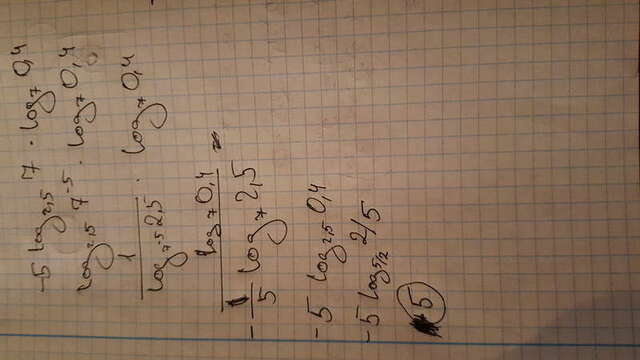 -5 log₂,₅ 7 · log₇ 0,4
log₂,₅ 7⁻⁵ · log₇ 0,4
1 / log₇⁻⁵ 2,5 · log₇ 0,4
log₇ 0,4 / -1/5 log₇ 2,5 =
-5 log₂,₅ 0,4
-5 log₅/₂ 2/5
5